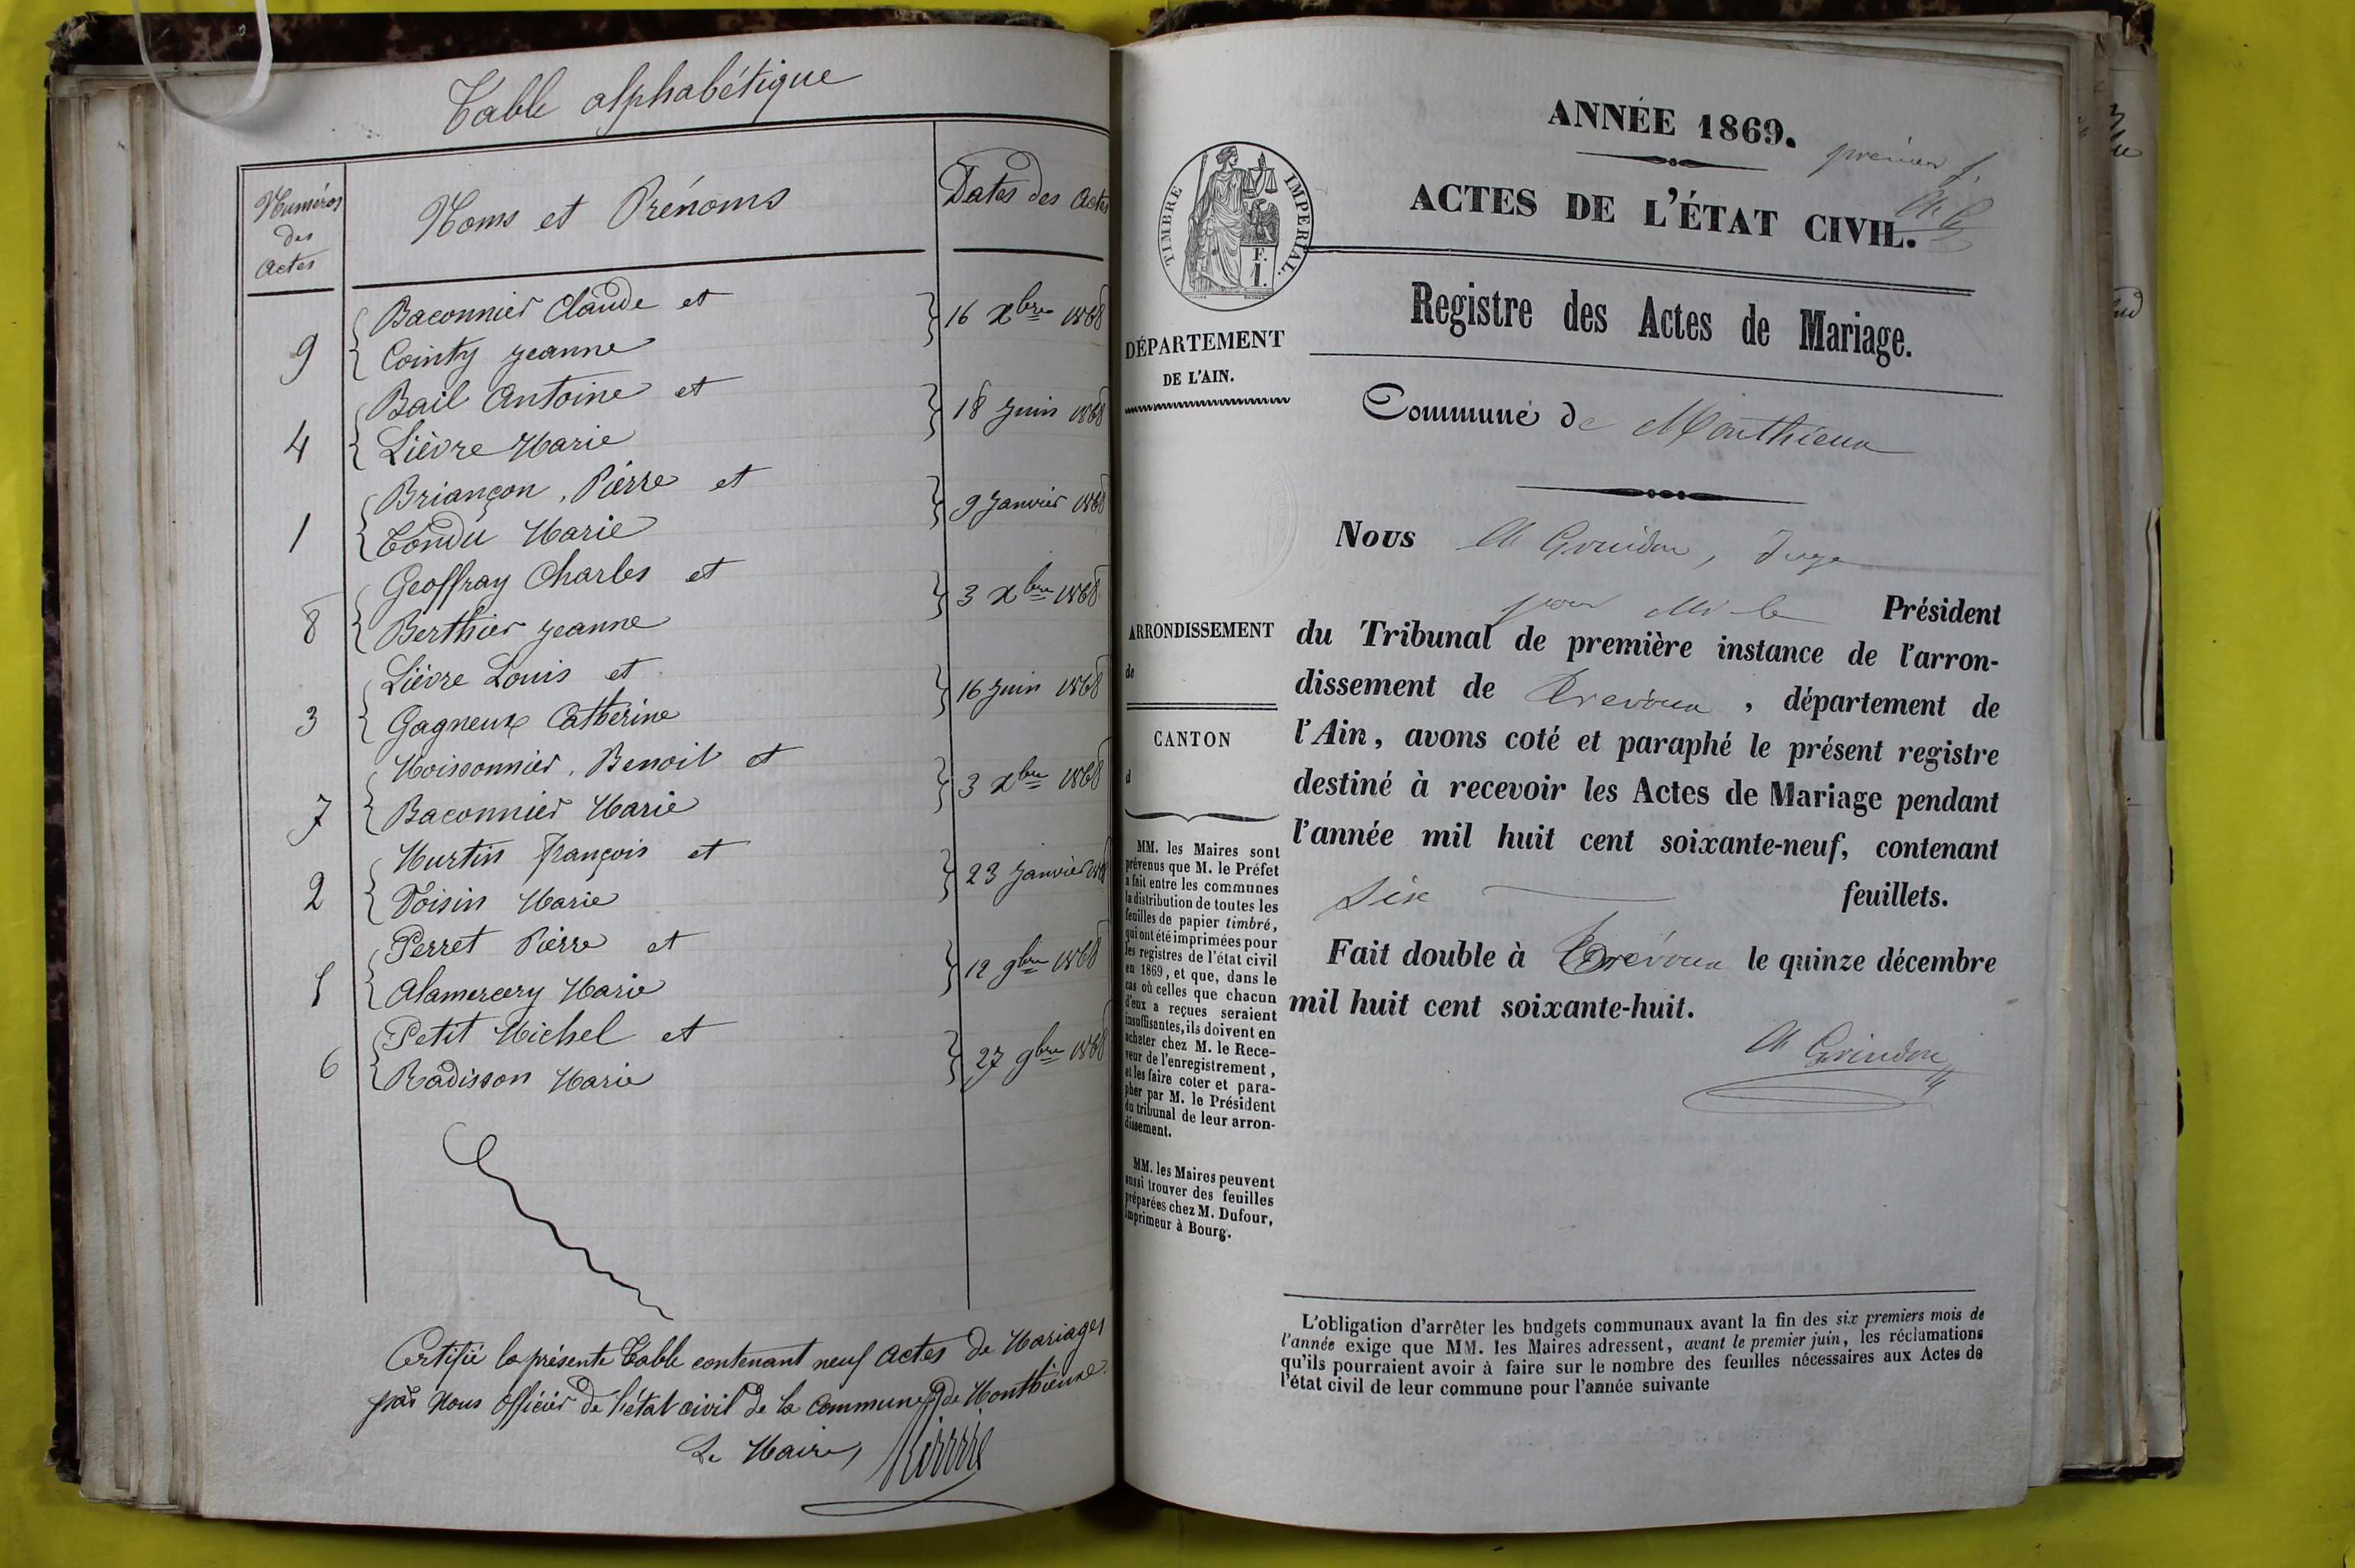 Table alphabétique
Numéros
des
Actes
Noms et Prénoms
Dates des Actes
9
Baconnier Claude et
Cointy Jeanne
16 Xbre 1868
4
Bail Antoine et
Lièvre Marie
18 Juin 1868
1
Briançon, Pierre et
Tondu Marie
9 Janvier 1868
8
Geoffray Charles et
Berthier Jeanne
3 Xbre 1868
3
Lièvre Louis et
Gagneux Catherine
16 Juin 1868
7
Moissonnier, Benoit et
Baconnier Marie
3 Xbre 1868
2
Murtin François et
Voisin Marie
23 Janvier 1868
5
Perret Pierre et
Alamercery Marie
12 9bre 1868
6
Petit Michel et
Radisson Marie
27 9bre 1868
Certifié la présente Table contenant neuf Actes de Mariages
par Nous Officier de l'état civil de la Commune de Monthieux.
Le Maire,
ANNÉE 1869.
premier f.
ACTES DE L'ÉTAT CIVIL.
TIMBRE IMPERIAL.
F.
1.
Registre des Actes de Mariage.
DÉPARTEMENT
DE L'AIN.
Commune de Monthieux
Nous A Grindon, Juge
pour M. le Président
ARRONDISSEMENT
de
CANTON
d
du Tribunal de première instance de l'arron-
dissement de Trevoux, département de
l'Ain, avons coté et paraphé le présent registre
destiné à recevoir les Actes de Mariage pendant
l'année mil huit cent soixante-neuf, contenant
Six feuillets.
Fait double à Trévoux le quinze décembre
mil huit cent soixante-huit.
A Grindon
MM. les Maires sont
prévenus que M. le Préfet
a fait entre les communes
la distribution de toutes les
feuilles de papier timbré,
qui ont été imprimées pour
les registres de l'état civil
en 1869, et que, dans le
cas où celles que chacun
d'eux a reçues seraient
insuffisantes, ils doivent en
acheter chez M. le Rece-
veur de l'enregistrement,
et les faire coter et para-
pher par M. le Président
du tribunal de leur arron-
dissement.
MM. les Maires peuvent
aussi trouver des feuilles
préparées chez M. Dufour,
imprimeur à Bourg.
L'obligation d'arrêter les budgets communaux avant la fin des six premiers mois de
l'année exige que MM. les Maires adressent, avant le premier juin, les réclamations
qu'ils pourraient avoir à faire sur le nombre des feuilles nécessaires aux Actes de
l'état civil de leur commune pour l'année suivante